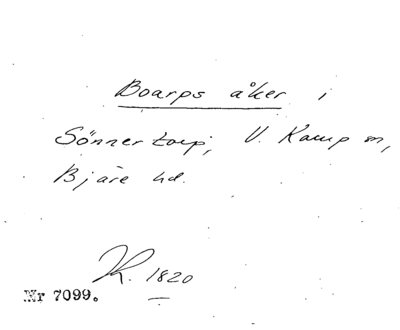 Boarps åker i
Sönnertorp, V. Karup sn,
Bjäre hd.
K. 1820
Nr 7099.